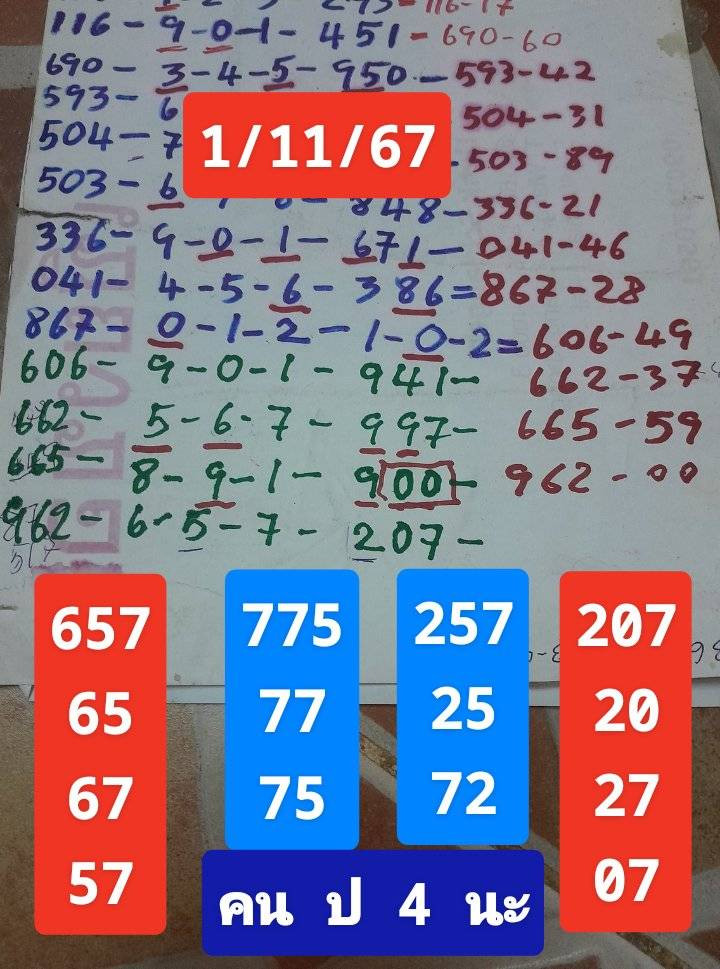 116-17
116 - 9-0-1- 451 - 690-60
690 - 3-4-5- 950 - 593-42
593 - 6
504-31
504 - 7
1/11/67
503-89
503 - 6
848 - 336-21
336 - 9-0-1- 671 - 041-46
041 - 4-5-6- 386 = 867-28
867 - 0-1-2 - 1-0-2 = 606-49
606 - 9-0-1- 941 - 662-37
662 - 5-6-7 - 997 - 665-59
665 - 8-9-1- 900 - 962-00
962 - 6-5-7- 207 -
657 775 257 207
65 77 25 20
67 75 72 27
57 07
คน ป 4 นะ